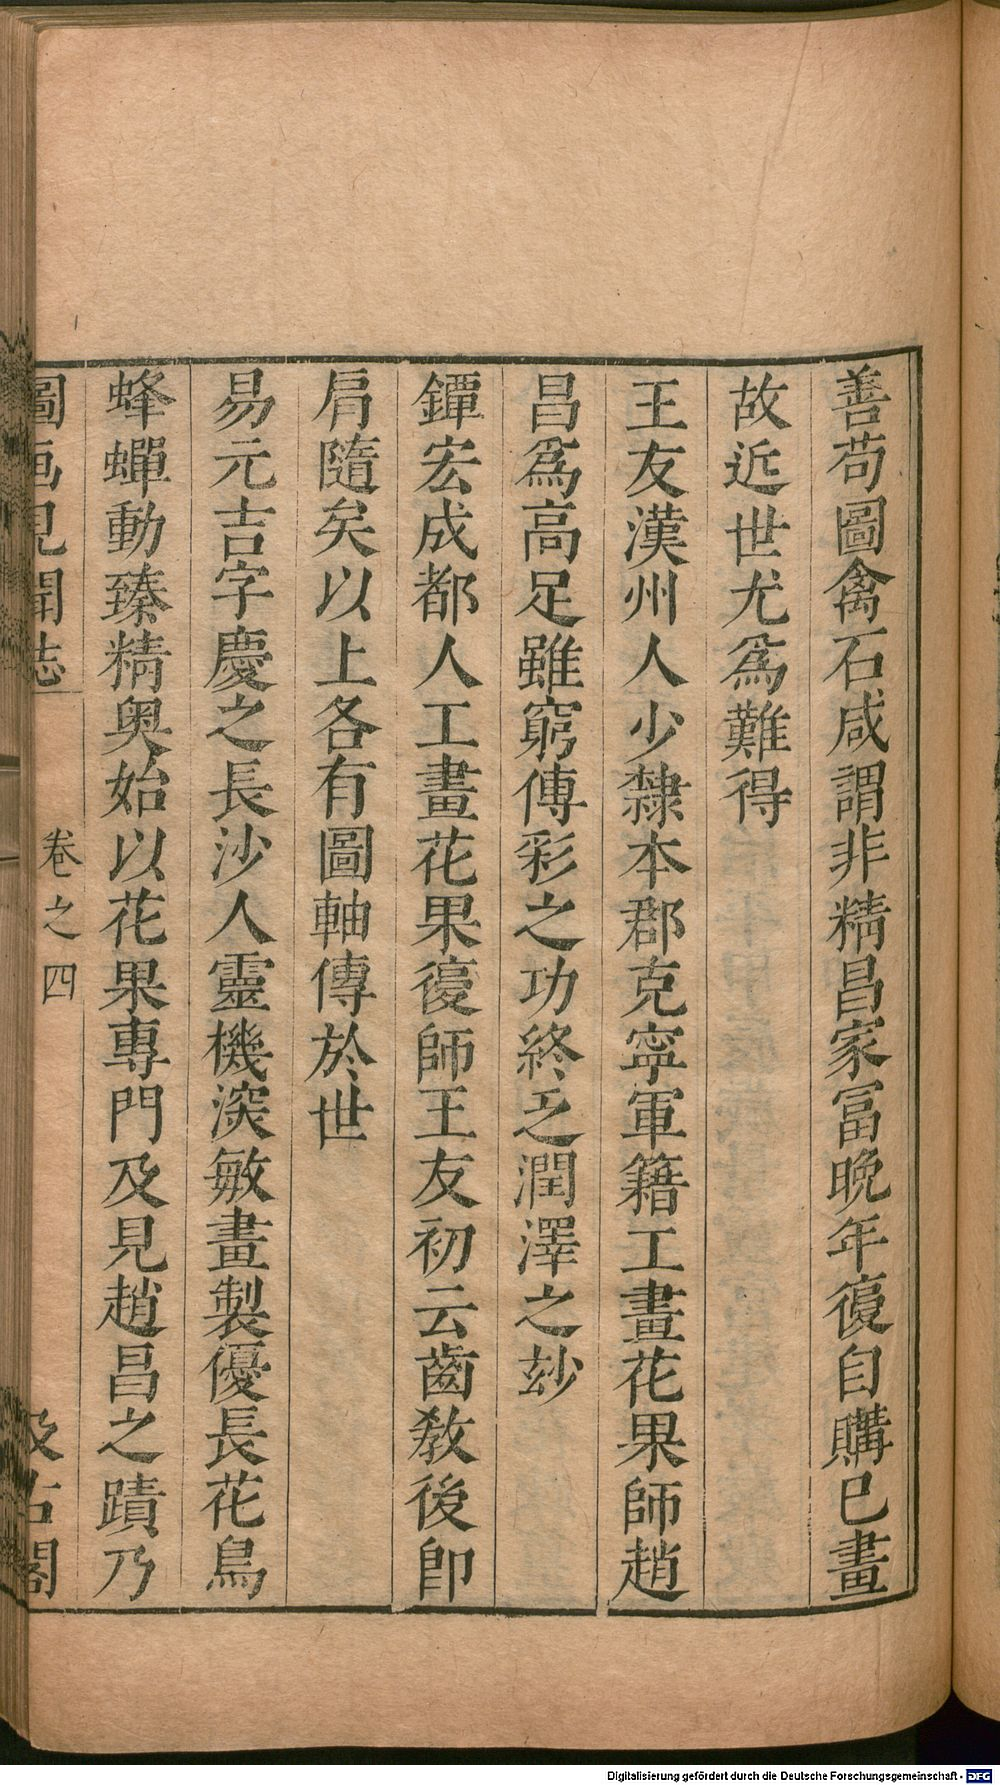 善苟圖禽石咸謂非精昌家冨晚年復自購已畫
故近世尤爲難得
王友漢州人少隸本郡克寧軍籍工畫花果師趙
昌爲高足雖窮傳彩之功終乏潤澤之玅
鐔宏成都人工畫花果復師王友初云齒教後卽
肩隨矣以上各有圖軸傳於世
易元吉字慶之長沙人靈機深敏畫製優長花鳥
蜂蟬動臻精奥始以花果專門及見趙昌之蹟乃
圖画見聞志 卷之四 汲古閣
Digitalisierung gefördert durch die Deutsche Forschungsgemeinschaft - DFG